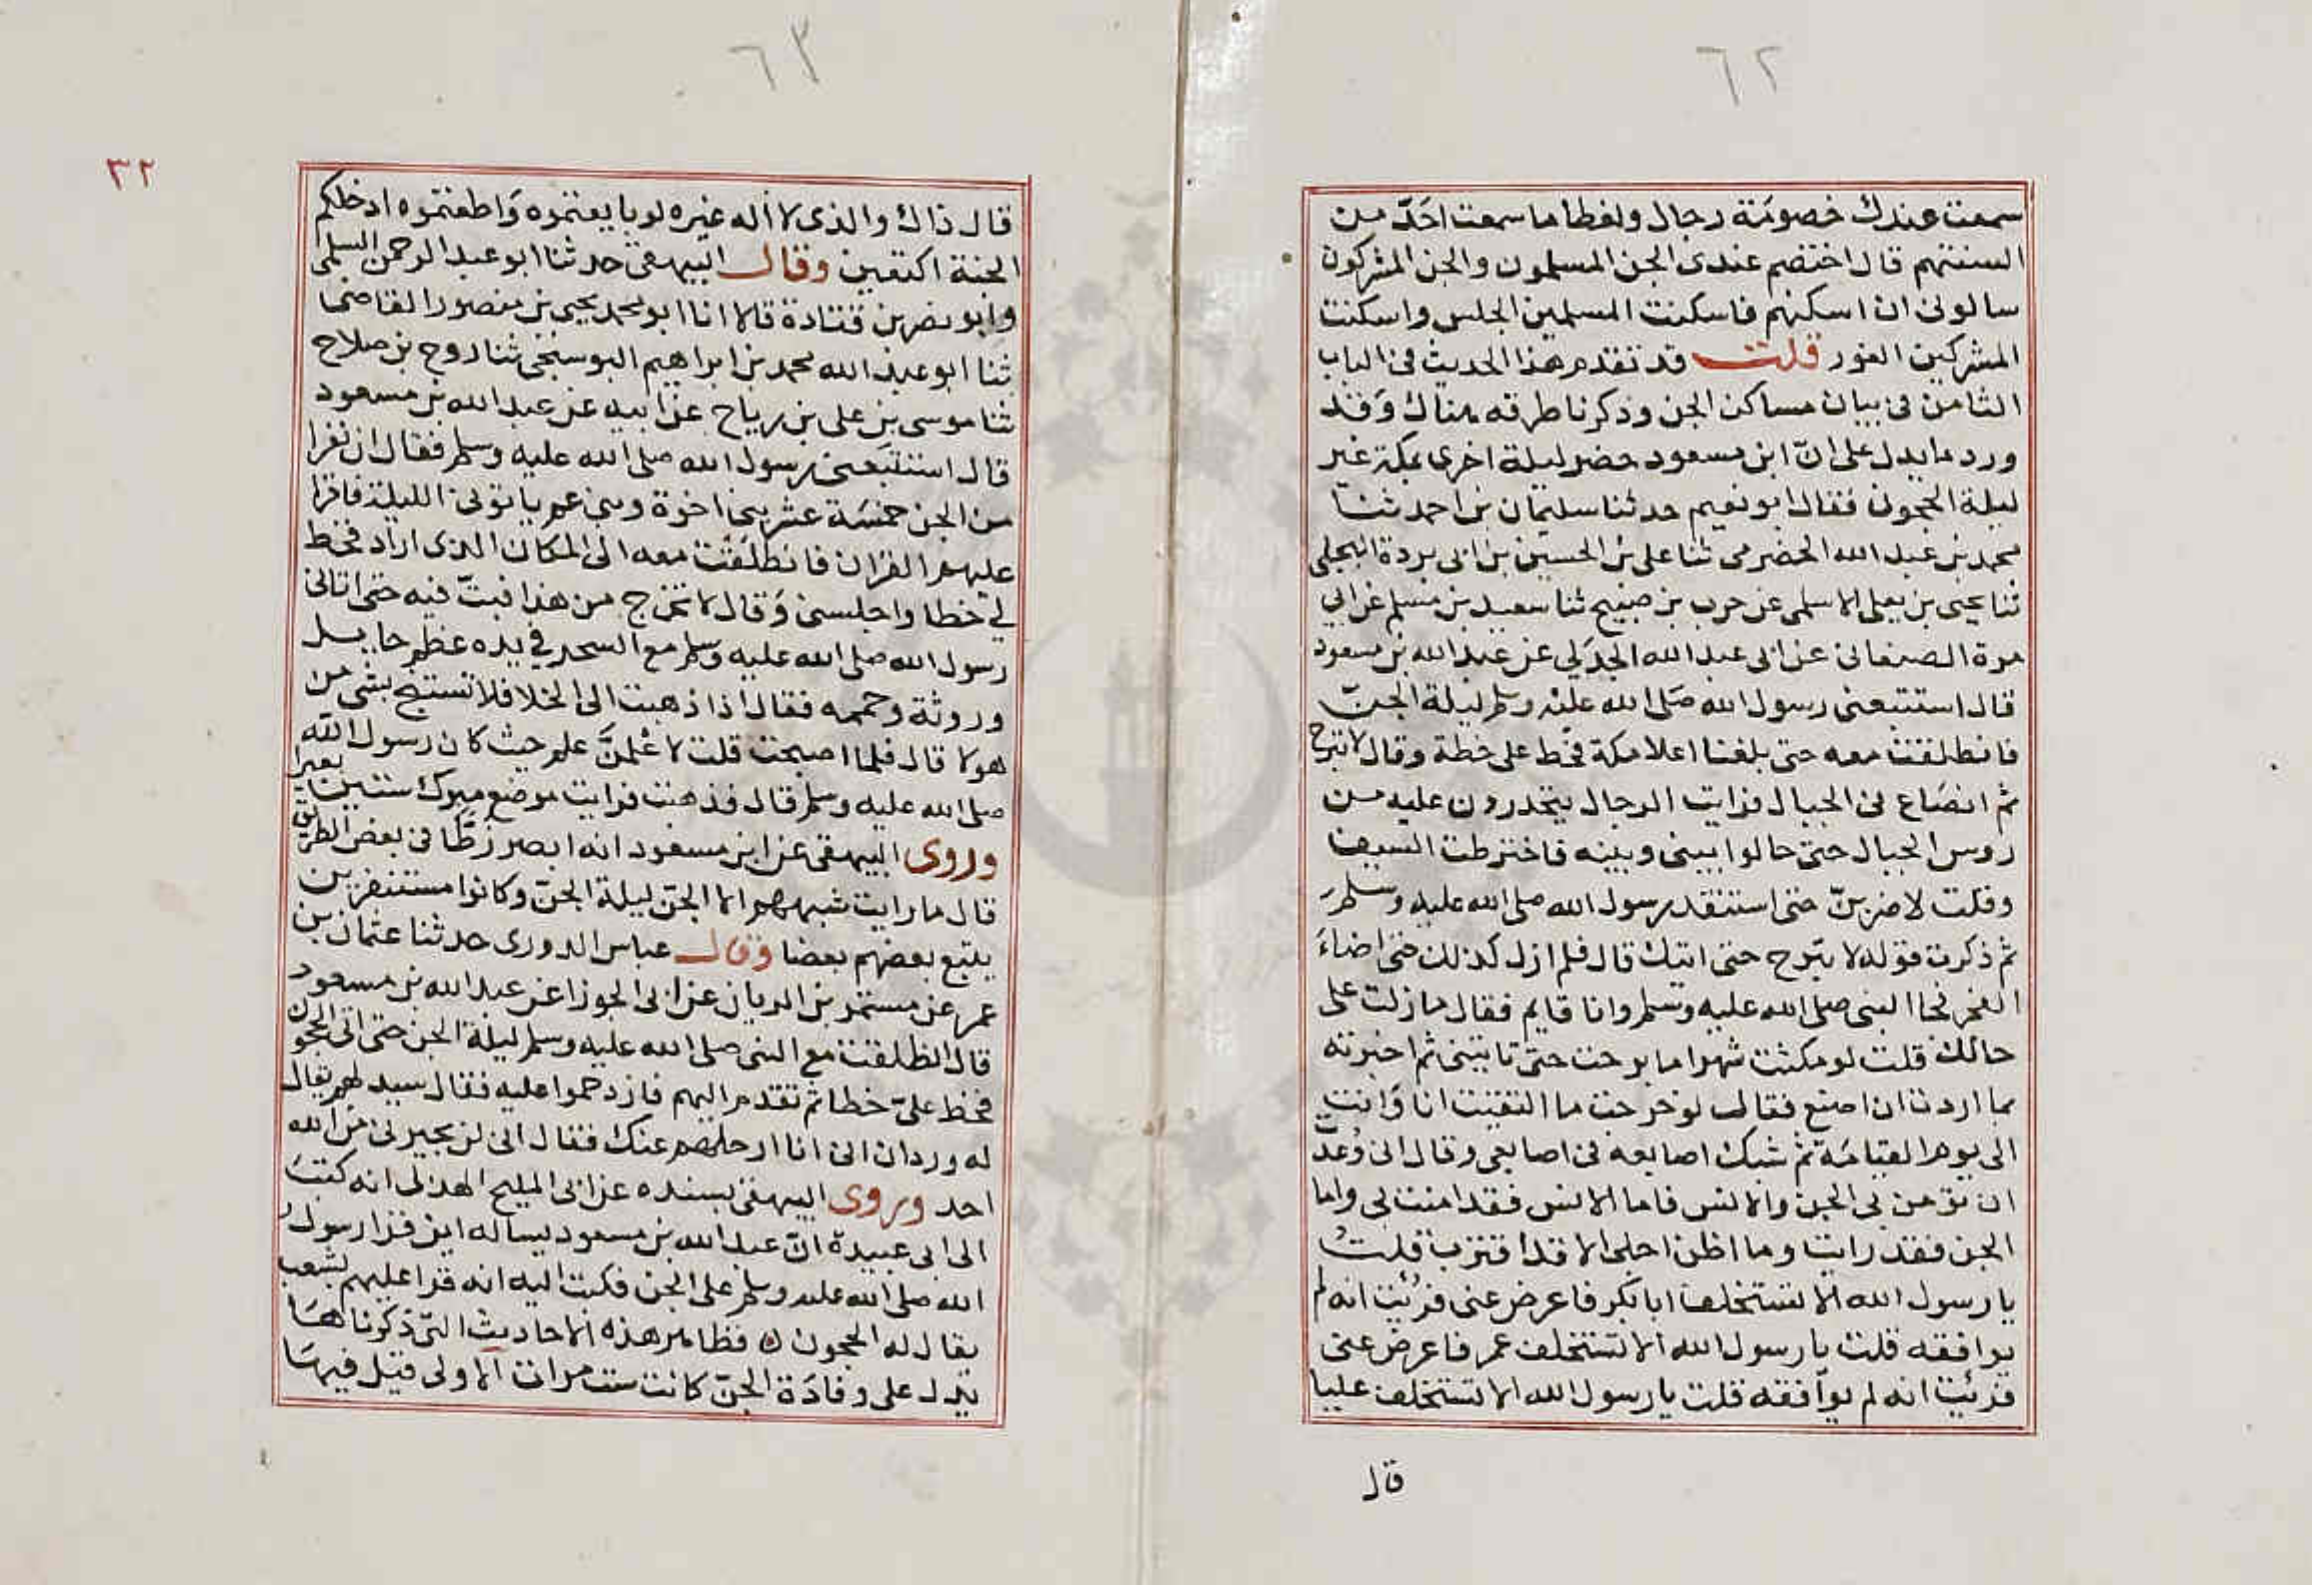 ٦٢
سمعت عندك خصومة رجال ولغطا ما سمعت احدّ من
السنتهم قال اختصم عندى الجن المسلمون والجن المشركون
سالونى ان اسكنهم فاسكنت المسلمين الجلس واسكنت
المشركين الغور قلت قد تقدم هذا الحديث فى الباب
الثامن فى بيان مساكن الجن وذكرنا طرقه هناك وَقد
ورد ما يدل على انّ ابن مسعود حضر ليلة اخرى بمكة غير
ليلة الحجون فقال ابو نعيم حدثنا سليمان بن احمد ثنا
محمد بن عبد الله الحضرمى ثنا على بن الحسين بن ابى بردة البجلى
ثنا يحيى بن يعلى الاسلمى عن حرب بن صبيح ثنا سعيد بن مسلم عن ابي
مرة الصنعانى عن ابى عبد الله الجدَلي عن عبد الله بن مسعود
قال استتبعنى رسول الله صَلى الله عليْه وسلم ليلة الجنّ
فانطلقت معه حتى بلغنا اعلا مكة فخط على خطة وقال لا تبرح
ثم انصَاع فى الجبال فرايت الرجال يتحدرون عليه من
روس الجبال حتى حالوا بينى وبينه فاخترطت السيف
وقلت لاضربنّ حتى استنقد رسول الله صلى الله عليه وسلمَ
ثم ذكرت قوله لا تبرح حتى اتيك قال فلم ازل كذلك حتى اضاءَ
الفجر فجا النبى صلى الله عليه وسلم وانا قايم فقال ما زلت على
حالك قلت لو مكثت شهرا ما برحت حتى تاتينى ثم اخبرته
بما اردت ان اصنع فقال لو خرجت ما التقيت انا وَانت
الى يوم القيامَة ثم شبك اصابعه فى اصابعى وقال انى وُعدتّ
ان تؤمن بى الجن والانس فاما الانس فقد امنت بى واما
الجن فقد رايت وما اظن اجلى الا قد اقترب قلتُ
يا رسول الله الا تستخلف ابا بكر فاعرض عنى فرُئيت انه لم
يوافقه قلت يا رسول الله الا تستخلف عمر فاعرض عنى
فرئيت انه لم يوافقه قلت يا رسول الله الا تستخلف عليا
قال
٦٣
٣٢
قال ذاك والذى لا اله غيره لو بايعتموه وَاطعتموه ادخلكم
الجنة اكتعين وقال البيهقى حدثنا ابو عبد الرحمن السلمى
وابو نصر بن قتادة قالا انا ابو محمد يحيى بن منصور القاضى
ثنا ابو عبد الله محمد بن ابراهيم البوسنجى ثنا روح بن صلاح
ثنا موسى بن على بن رياح عن ابيه عن عبد الله بن مسعود
قال استتبَعنى رسول الله صلى الله عليه وسلم فقال ان نفرا
من الجن خمسَة عشر بنى اخوة وبنى عم ياتونى الليلة فاقرا
عليهم القران فانطلَقت معه الى المكان الذى اراد فخط
لي خطا واجلسنى وَقال لا تخرج من هذا فبتّ فيه حتى اتانى
رسول الله صلى الله عليه وَسلم مع السحر في يده عظم حايل
وروثة وحممه فقال اذا ذهبت الى الخلا فلا تستنج بشى من
هولا قال فلما اصبحت قلت لا عْلمنّ علم حيث كان رسول الله
صلى الله عليه وسلم قال فذهبت فرايت موضع مبرك ستين بعيرا
وروى البيهقى عن ابن مسعود انه ابصر زطّا فى بعض الطريق
قال ما رايت شبههم الا الجنّ ليلة الجنّ وكانوا مستنفرين
يتبع بعضهم بعضا وقال عباس الدورى حدثنا عثمان بن
عمر عن مستمر بن الريان عن ابى الجوزا عن عبد الله بن مسعود
قال انطلقت مع النبى صلى الله عليه وسلم ليلة الجن حتى اتى الحجون
فخط علىّ خطا ثم تقدم اليهم فازدحموا عليه فقال سيد لهم يقال
له وردان انى انا ارحلهم عنك فقال انى لن يجيرنى من الله
احد وروى البيهقى بسنده عن ابى المليح الهذلى انه كتبَ
الى ابى عبيدة انّ عبد الله بن مسعود يساله اين قرا رسول
الله صلى الله عليه وسلم على الجن فكتب اليه انه قرا عليهم بشعب
يقال له الحجون فظاهر هذه الاحاديث التى ذكرناهَا
يدل على وفادَة الجنّ كانت ست مرات الاولى قيل فيهَا